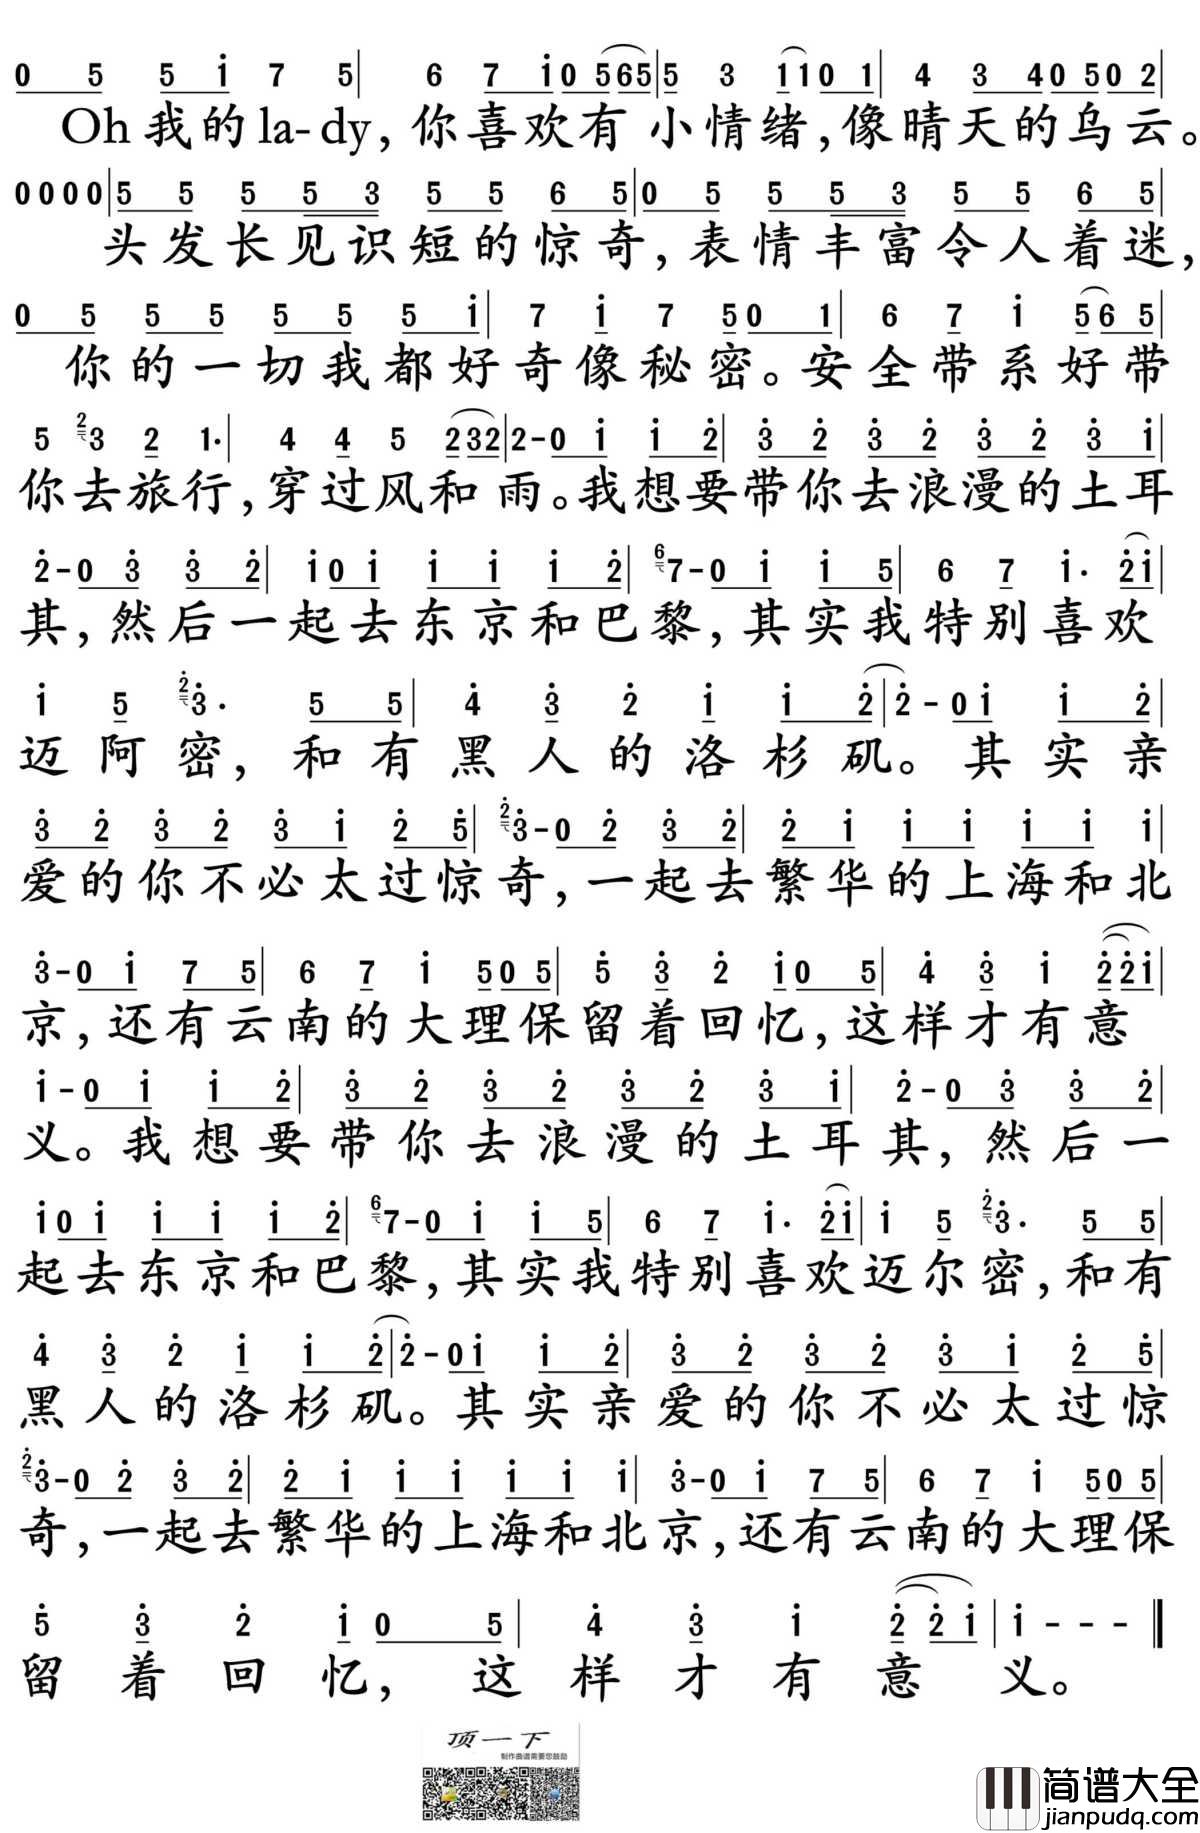 0 5 5 i 7 5| 6 7 i0 565|5 3 1101| 4 3 40 50 2|
Oh 我的la-dy, 你喜欢有 小情绪,像晴天的乌云。
0000|5 5 5 5 3 5 5 6 5|0 5 5 5 3 5 5 6 5|
头发长见识短的惊奇,表情丰富令人着迷,
0 5 5 5 5 5 5 i| 7 i 7 50 1| 6 7 i 565|
你的一切我都好奇像秘密。安全带系好带
5 23 2 1·| 4 4 5 232|2-0 i i 2|3 2 3 2 3 2 3 i|
你去旅行,穿过风和雨。我想要带你去浪漫的土耳
2-0 3 3 2|i0 i i i i 2|67-0 i i 5| 6 7 i· 2i|
其,然后一起去东京和巴黎,其实我特别喜欢
i 5 23· 5 5| 4 3 2 i i 2|2-0i i 2|
迈阿密,和有黑人的洛杉矶。其实亲
3 2 3 2 3 i 2 5|23-0 2 3 2|2 i i i i i i|
爱的你不必太过惊奇,一起去繁华的上海和北
3-0 i 7 5| 6 7 i 50 5| 5 3 2 i0 5| 4 3 i 22i|
京,还有云南的大理保留着回忆,这样才有意
i-0 i i 2|3 2 3 2 3 2 3 i| 2-0 3 3 2|
义。我想要带你去浪漫的土耳其,然后一
i0 i i i i 2|67-0 i i 5| 6 7 i· 2i|i 5 23· 5 5|
起去东京和巴黎,其实我特别喜欢迈尔密,和有
4 3 2 i i 2|2-0i i 2|3 2 3 2 3 i 2 5|
黑人的洛杉矶。其实亲爱的你不必太过惊
23-0 2 3 2|2 i i i i i i|3-0 i 7 5| 6 7 i 50 5|
奇,一起去繁华的上海和北京,还有云南的大理保
5 3 2 i0 5| 4 3 i 2 2 i|i - - -‖
留着回忆,这样才有意义。
顶一下
制作曲谱需要您鼓励
简谱大全
jianpudq.com